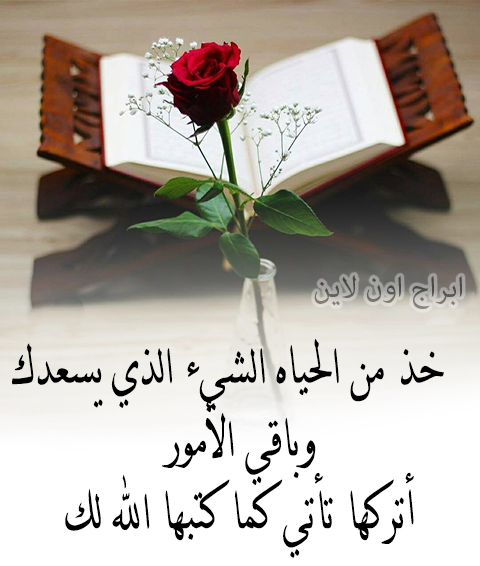 ابراج اون لاين
خذ من الحياه الشيء الذي يسعدك
وباقي الأمور
أتركها تأتي كما كتبها الله لك